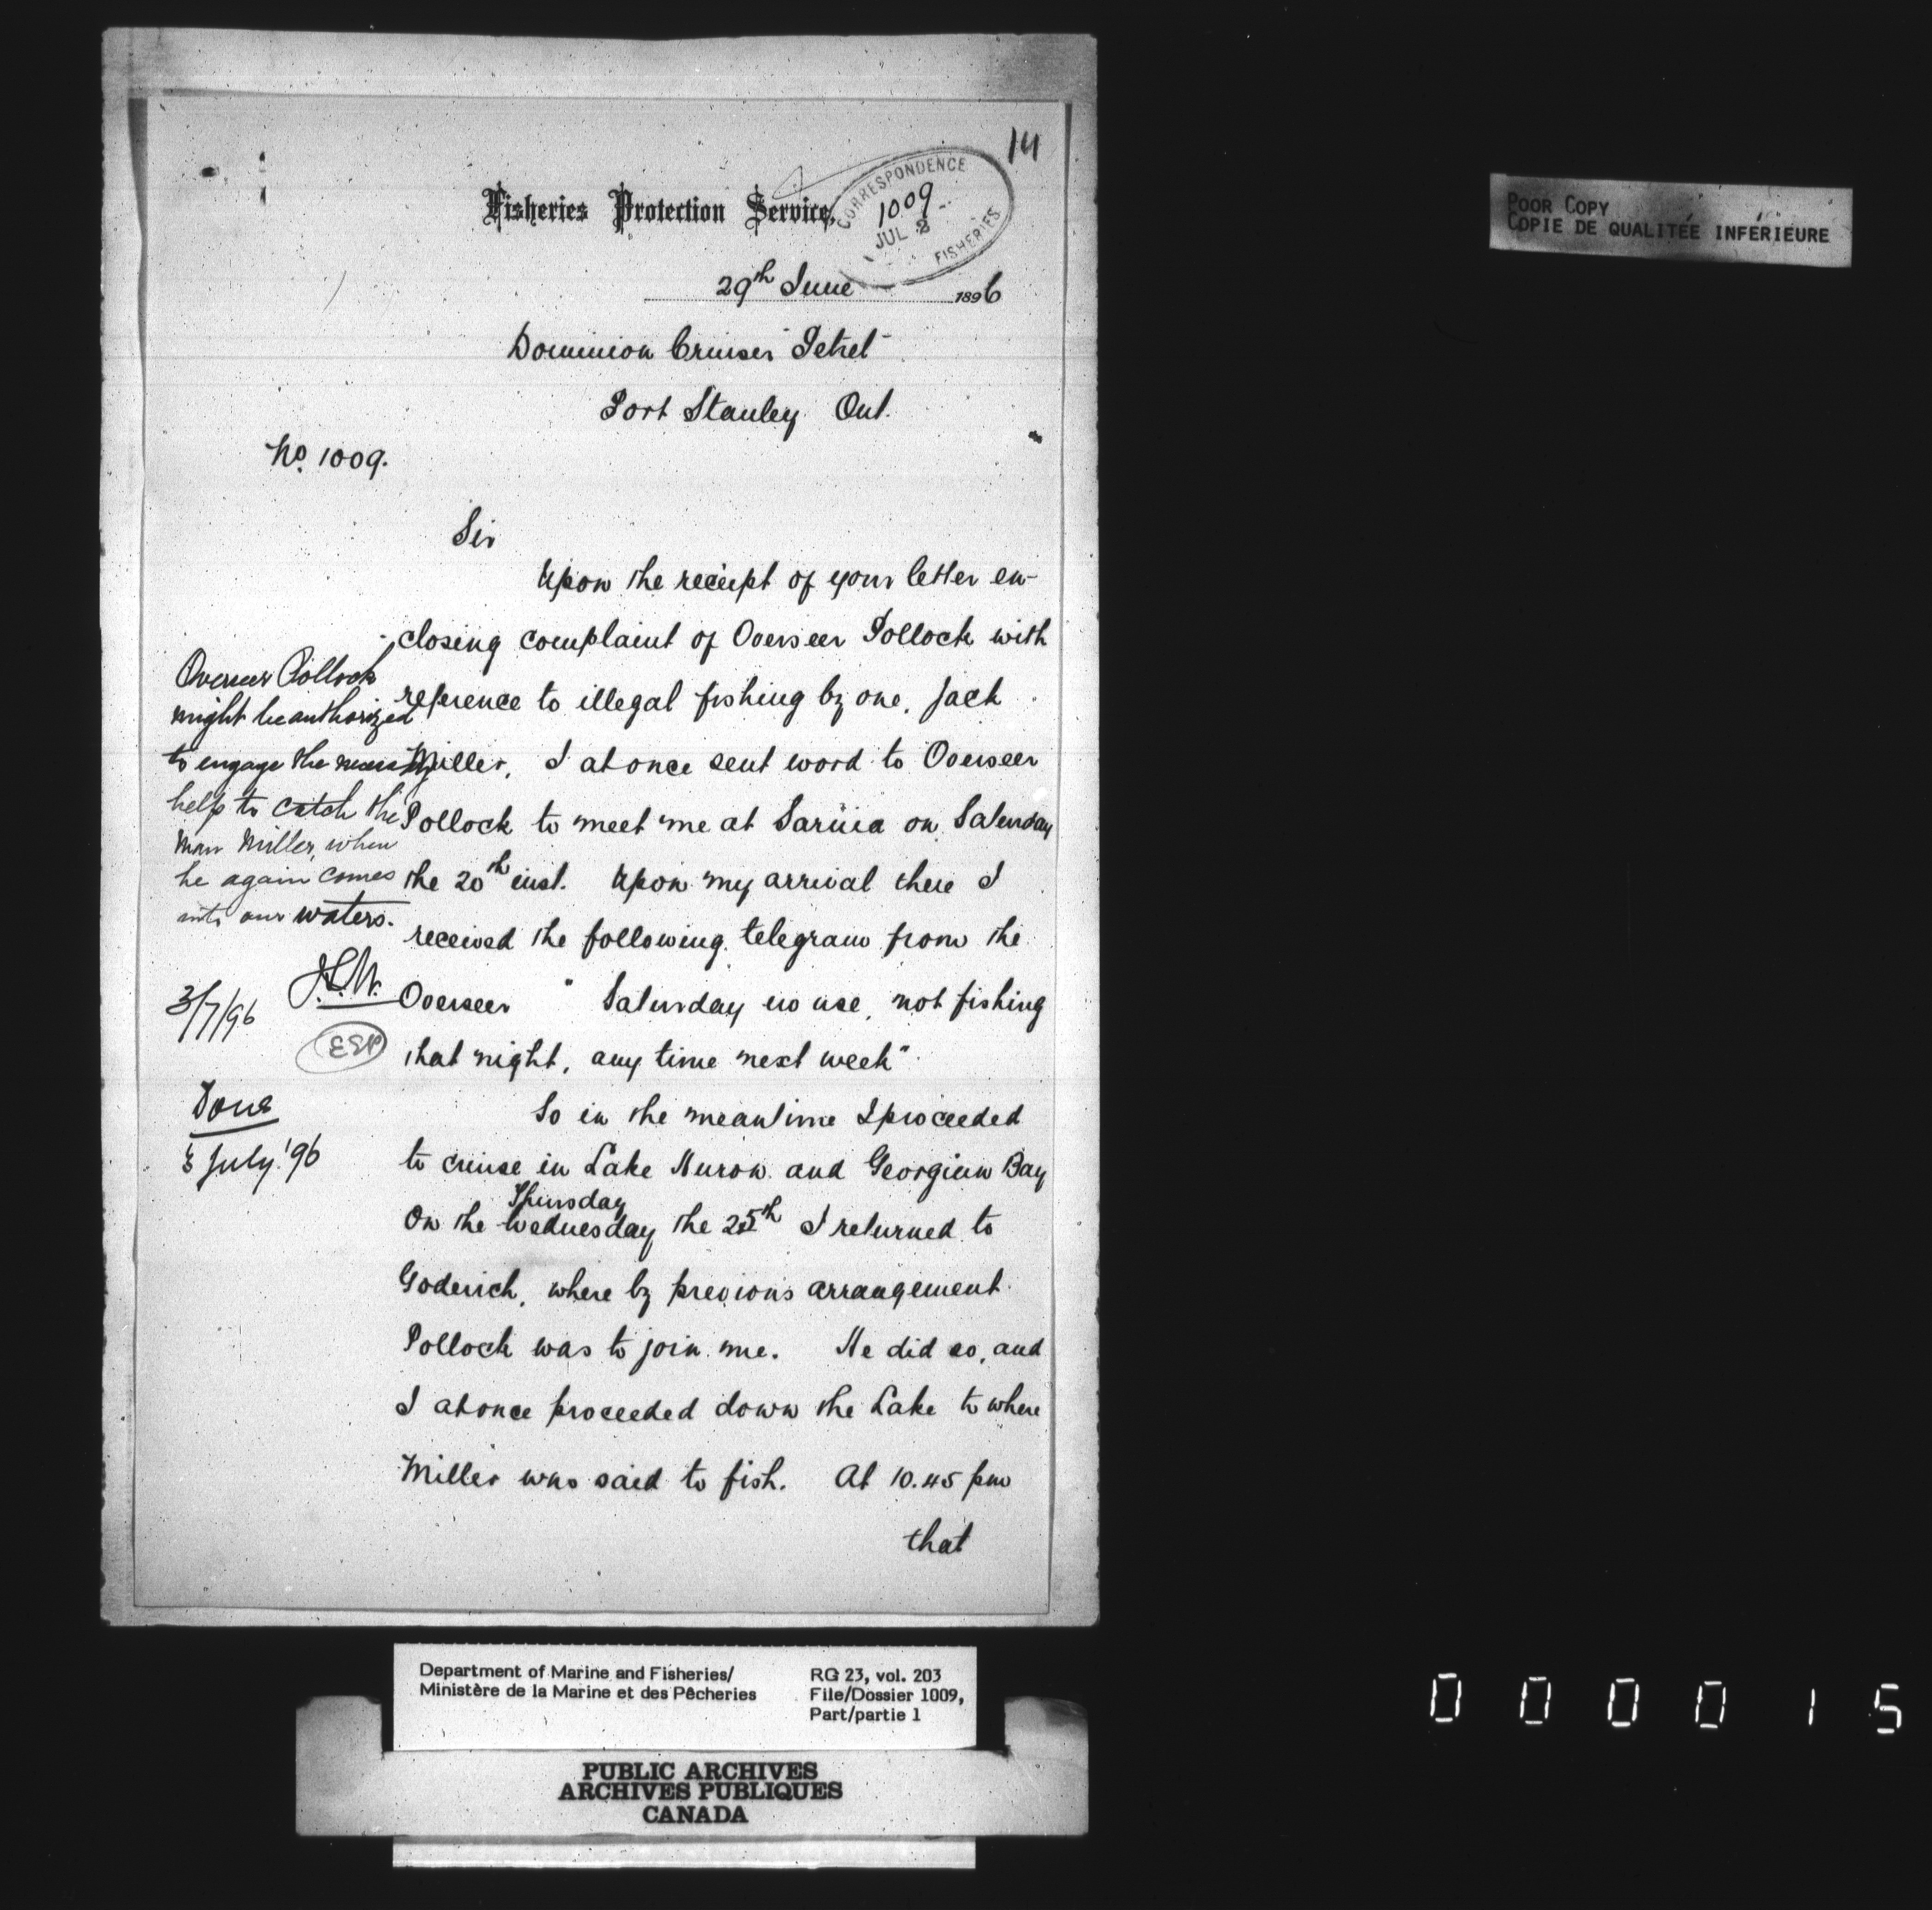 14
Fisheries Protection Service,
CORRESPONDENCE
1009
JUL 2
FISHERIES
29th June 1896
Dominion Cruiser "Petrel"
Port Stanley Ont.
No. 1009.
Sir
Upon the receipt of your letter en-
closing complaint of Overseer Pollock with
reference to illegal fishing by one, Jack
Miller, I at once sent word to Overseer
Pollock to meet me at Sarnia on Saturday
the 20th inst. Upon my arrival there I
received the following telegram from the
Overseer "Saturday no use, not fishing
that night, any time next week".
So in the meantime I proceeded
to cruise in Lake Huron and Georgian Bay
Thursday
On the Wednesday the 25th I returned to
Goderich, where by previous arrangement
Pollock was to join me. He did so, and
I at once proceeded down the Lake to where
Miller was said to fish. At 10.45 pm
that
Overseer Pollock
might be authorized
to engage the
help to catch the
man Miller, when
he again comes
into our waters.
3/7/96
Done
July '96
POOR COPY
COPIE DE QUALITÉE INFÉRIEURE
Department of Marine and Fisheries/
Ministère de la Marine et des Pêcheries
RG 23, vol. 203
File/Dossier 1009,
Part/partie 1
PUBLIC ARCHIVES
ARCHIVES PUBLIQUES
CANADA
000015